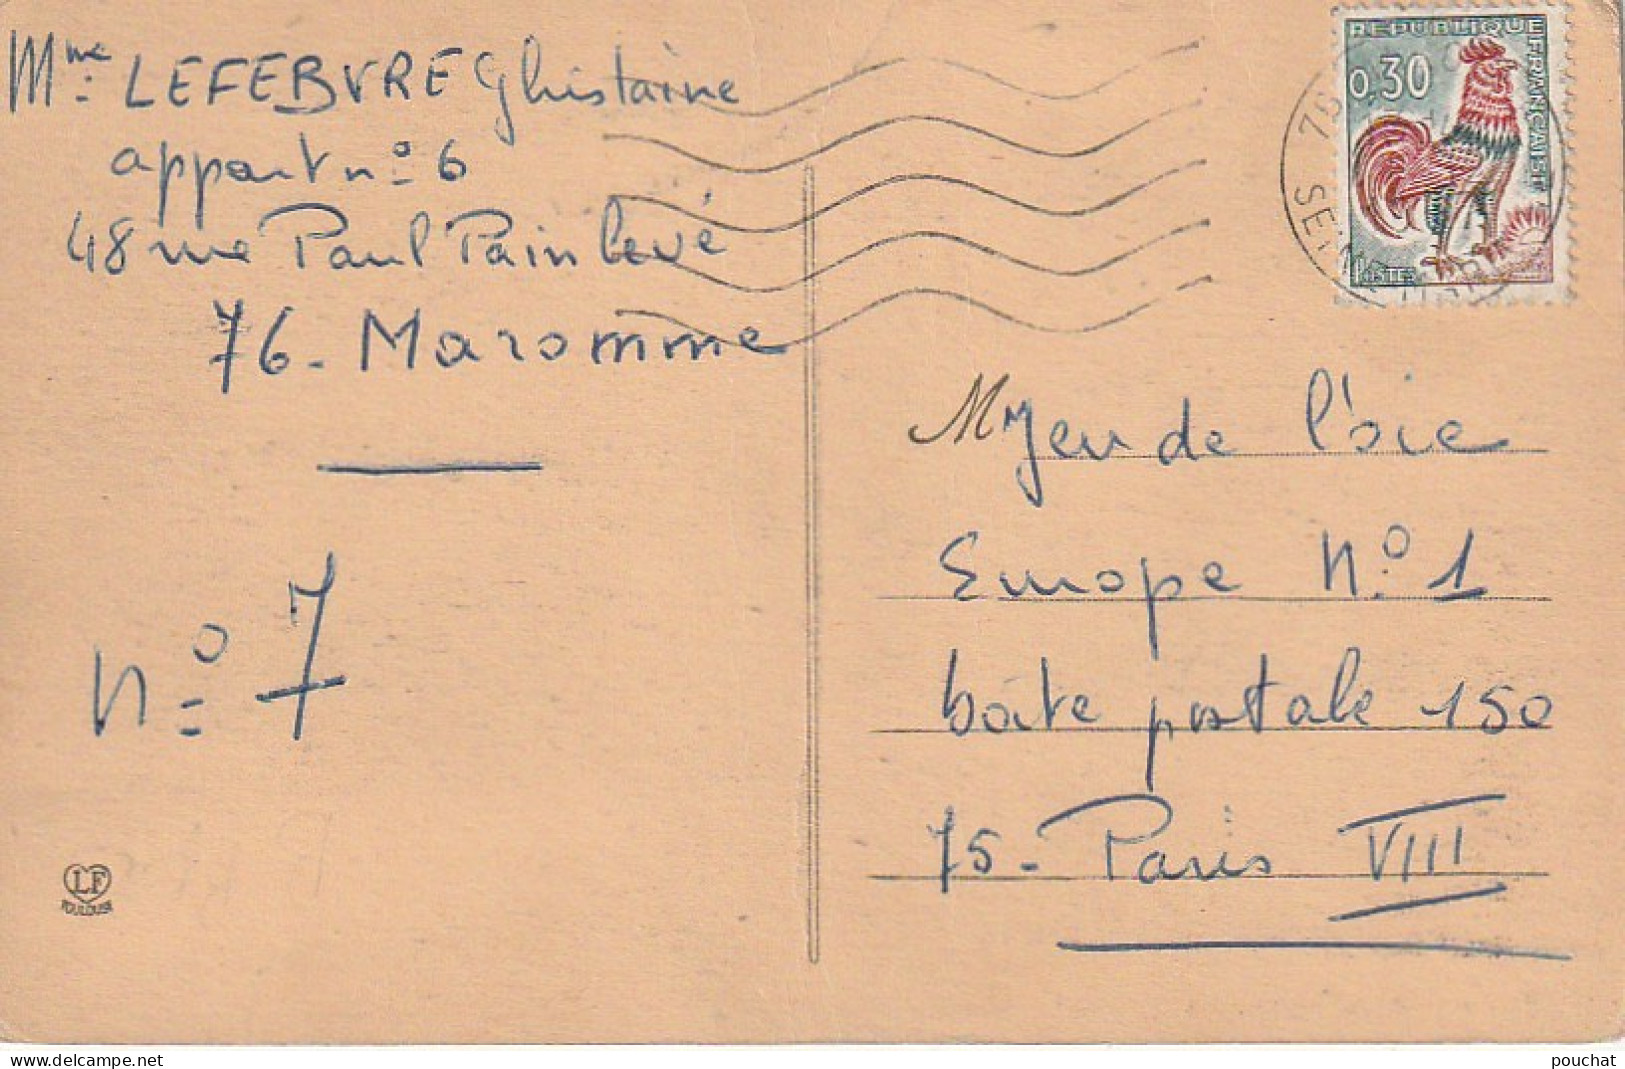 Mme LEFEBVRE Ghislaine
appart n° 6
48 rue Paul Painlevé
76 - Maromme
n° 7
LF
TOULOUSE
REPUBLIQUE FRANÇAISE
0,30
POSTES
76
SEINE
M Jeu de l'oie
Europe N° 1
boîte postale 150
75 - Paris VIII
pouchat